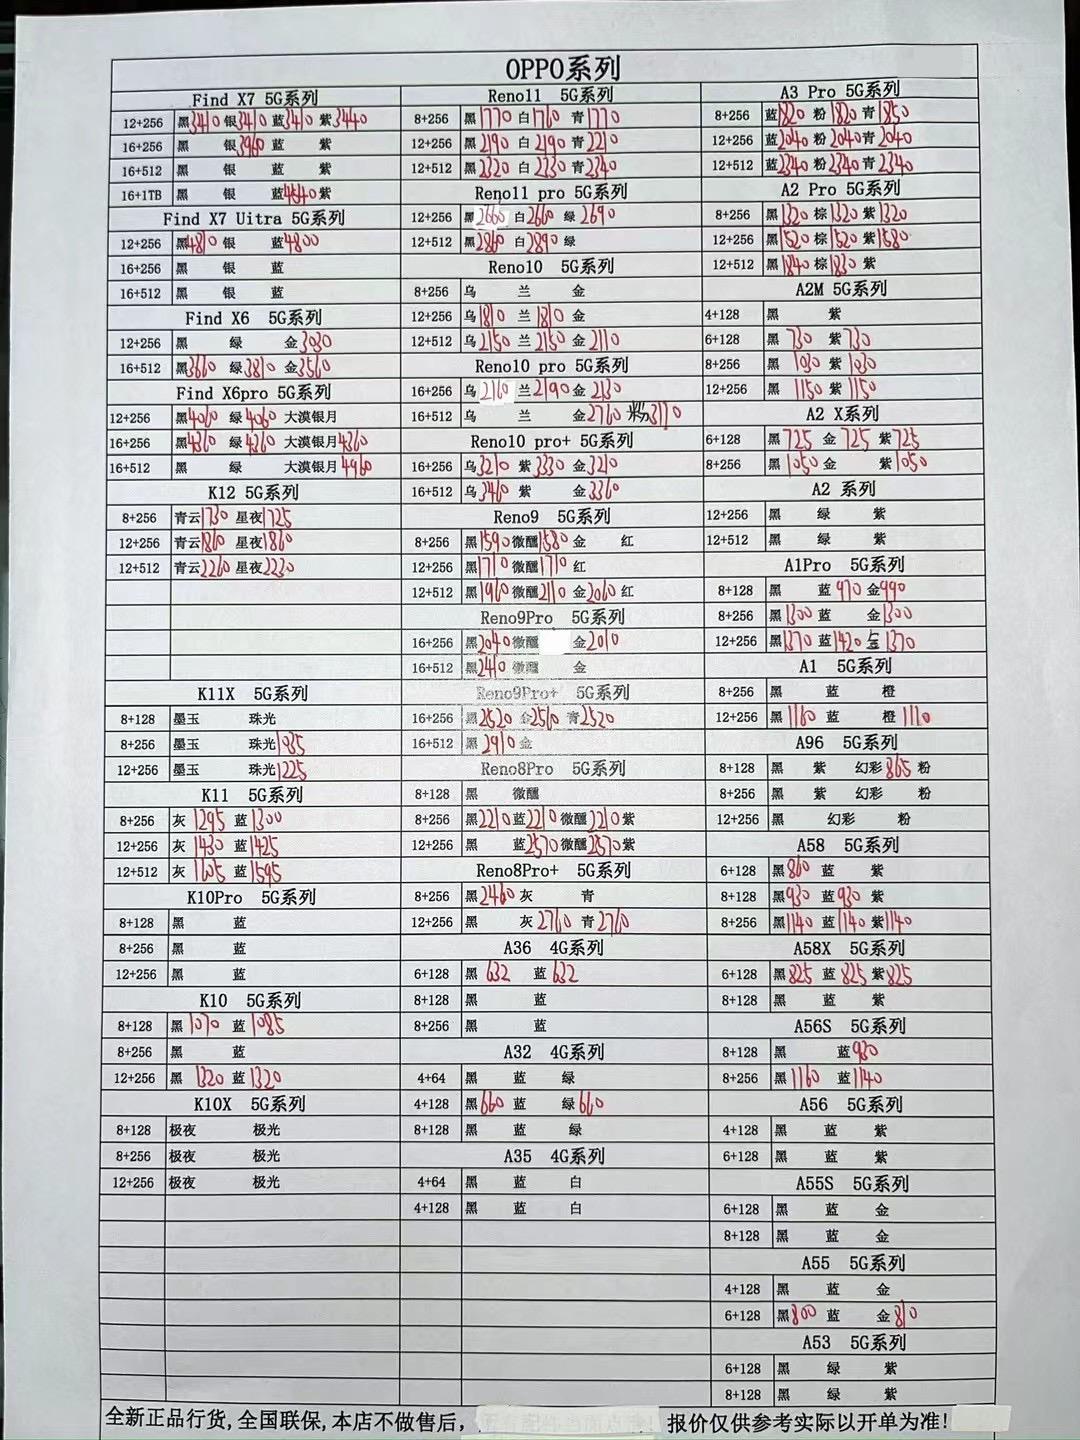 OPPO系列
Find X7 5G系列
12+256 黑3410 银3410 蓝3410 紫3440
16+256 黑 银3960 蓝 紫
16+512 黑 银 蓝 紫
16+1TB 黑 银 蓝4540 紫
Find X7 Uitra 5G系列
12+256 黑4810 银 蓝4800
16+256 黑 银 蓝
16+512 黑 银 蓝
Find X6 5G系列
12+256 黑 绿 金3030
16+512 黑3660 绿3810 金3560
Find X6pro 5G系列
12+256 黑4060 绿4060 大漠银月
16+256 黑4360 绿4360 大漠银月4360
16+512 黑 绿 大漠银月4960
K12 5G系列
8+256 青云1730 星夜1725
12+256 青云1860 星夜1860
12+512 青云2260 星夜2230
K11X 5G系列
8+128 墨玉 珠光
8+256 墨玉 珠光1035
12+256 墨玉 珠光1225
K11 5G系列
8+256 灰1295 蓝1300
12+256 灰1430 蓝1425
12+512 灰1605 蓝1595
K10Pro 5G系列
8+128 黑 蓝
8+256 黑 蓝
12+256 黑 蓝
K10 5G系列
8+128 黑1070 蓝1085
8+256 黑 蓝
12+256 黑1320 蓝1320
K10X 5G系列
8+128 极夜 极光
8+256 极夜 极光
12+256 极夜 极光
Reno11 5G系列
8+256 黑1770 白1760 青1770
12+256 黑2190 白2190 青2210
12+512 黑2320 白2330 青2340
Reno11 pro 5G系列
12+256 黑2660 白2660 绿2690
12+512 黑2860 白2890 绿
Reno10 5G系列
8+256 乌 兰 金
12+256 乌1810 兰1810 金
12+512 乌2150 兰2150 金2110
Reno10 pro 5G系列
16+256 乌2160 兰2190 金2130
16+512 乌 兰 金2760 粉3110
Reno10 pro+ 5G系列
16+256 乌3210 紫3330 金3210
16+512 乌3460 紫 金3360
Reno9 5G系列
8+256 黑1590 微醺1580 金 红
12+256 黑1710 微醺1710 红
12+512 黑1960 微醺2110 金2060 红
Reno9Pro 5G系列
16+256 黑2040 微醺 金2010
16+512 黑2410 微醺 金
Reno9Pro+ 5G系列
16+256 黑2520 金2560 青2520
16+512 黑2910 金
Reno8Pro 5G系列
8+128 黑 微醺
8+256 黑2210 蓝2210 微醺2210 紫
12+256 黑 蓝2570 微醺2570 紫
Reno8Pro+ 5G系列
8+256 黑2460 灰 青
12+256 黑 灰2760 青2760
A36 4G系列
6+128 黑632 蓝632
8+128 黑 蓝
8+256 黑 蓝
A32 4G系列
4+64 黑 蓝 绿
4+128 黑660 蓝 绿660
8+128 黑 蓝 绿
A35 4G系列
4+64 黑 蓝 白
4+128 黑 蓝 白
A3 Pro 5G系列
8+256 蓝1820 粉1820 青1850
12+256 蓝2040 粉2040 青2040
12+512 蓝2340 粉2340 青2340
A2 Pro 5G系列
8+256 黑1320 棕1320 紫1320
12+256 黑1520 棕1520 紫1580
12+512 黑1840 棕1830 紫
A2M 5G系列
4+128 黑 紫
6+128 黑730 紫730
8+256 黑1030 紫1030
12+256 黑1150 紫1150
A2 X系列
6+128 黑725 金725 紫725
8+256 黑1050 金 紫1050
A2 系列
12+256 黑 绿 紫
12+512 黑 绿 紫
A1Pro 5G系列
8+128 黑 蓝970 金990
8+256 黑1300 蓝 金1300
12+256 黑1370 蓝1420 金1370
A1 5G系列
8+256 黑 蓝 橙
12+256 黑1160 蓝 橙1110
A96 5G系列
8+128 黑 紫 幻彩865 粉
8+256 黑 紫 幻彩 粉
12+256 黑 幻彩 粉
A58 5G系列
6+128 黑860 蓝 紫
8+128 黑930 蓝930 紫
8+256 黑1140 蓝1140 紫1140
A58X 5G系列
6+128 黑825 蓝825 紫825
8+128 黑 蓝 紫
A56S 5G系列
8+128 黑 蓝930
8+256 黑1160 蓝1140
A56 5G系列
4+128 黑 蓝 紫
6+128 黑 蓝 紫
A55S 5G系列
6+128 黑 蓝 金
8+128 黑 蓝 金
A55 5G系列
4+128 黑 蓝 金
6+128 黑800 蓝 金810
A53 5G系列
6+128 黑 绿 紫
8+128 黑 绿 紫
全新正品行货,全国联保,本店不做售后, 报价仅供参考实际以开单为准!